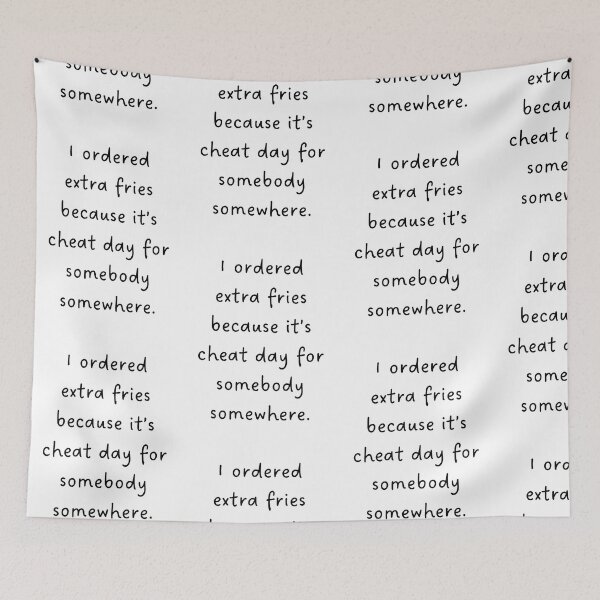 somebody
somewhere.
I ordered
extra fries
because it's
cheat day for
somebody
somewhere.
I ordered
extra fries
because it's
cheat day for
somebody
somewhere.
extra fries
because it's
cheat day for
somebody
somewhere.
I ordered
extra fries
because it's
cheat day for
somebody
somewhere.
I ordered
extra fries
somebody
somewhere.
I ordered
extra fries
because it's
cheat day for
somebody
somewhere.
I ordered
extra fries
because it's
cheat day for
somebody
somewhere.
extra
becau
cheat
some
somew
I ord
extra
becau
cheat
some
somew
I ord
extra